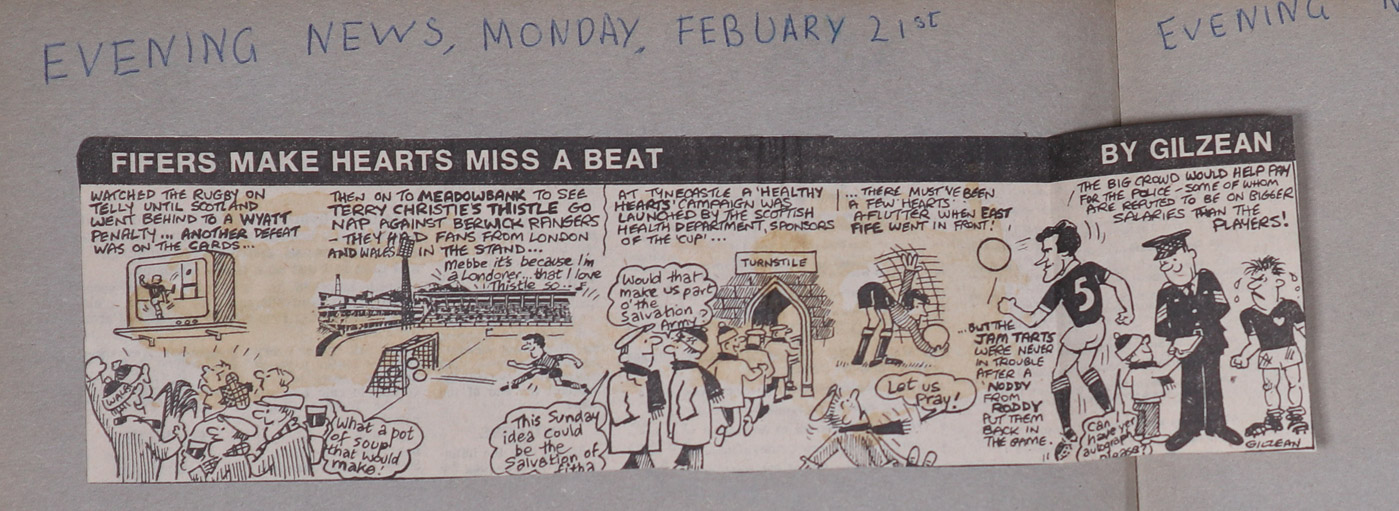 EVENING NEWS, MONDAY, FEBUARY 21st
EVENING
FIFERS MAKE HEARTS MISS A BEAT
BY GILZEAN
WATCHED THE RUGBY ON
TELLY UNTIL SCOTLAND
WENT BEHIND TO A WYATT
PENALTY... ANOTHER DEFEAT
WAS ON THE CARDS...
WALES
What a pot
of soup
that would
make!
THEN ON TO MEADOWBANK TO SEE
TERRY CHRISTIE'S THISTLE GO
NAP AGAINST BERWICK RANGERS
- THEY HAD FANS FROM LONDON
AND WALES IN THE STAND...
Mebbe it's because I'm
a Londoner...that I love
Thistle so...
This Sunday
idea could
be the
Salvation of
fitba
AT TYNECASTLE A 'HEALTHY
HEARTS' CAMPAIGN WAS
LAUNCHED BY THE SCOTTISH
HEALTH DEPARTMENT, SPONSORS
OF THE 'CUP'...
Would that
make us part
o' the
Salvation
Army?
TURNSTILE
...THERE MUST'VE BEEN
A FEW 'HEARTS'
A-FLUTTER WHEN EAST
FIFE WENT IN FRONT!
Let us
Pray!
...BUT THE
JAM TARTS
WERE NEVER
IN TROUBLE
AFTER A
'NODDY'
FROM
RODDY
PUT THEM
BACK IN
THE GAME.
5
THE BIG CROWD WOULD HELP PAY
FOR THE POLICE - SOME OF WHOM
ARE REPUTED TO BE ON BIGGER
SALARIES THAN THE
PLAYERS!
Can I
have yer
autograph
please?
GILZEAN